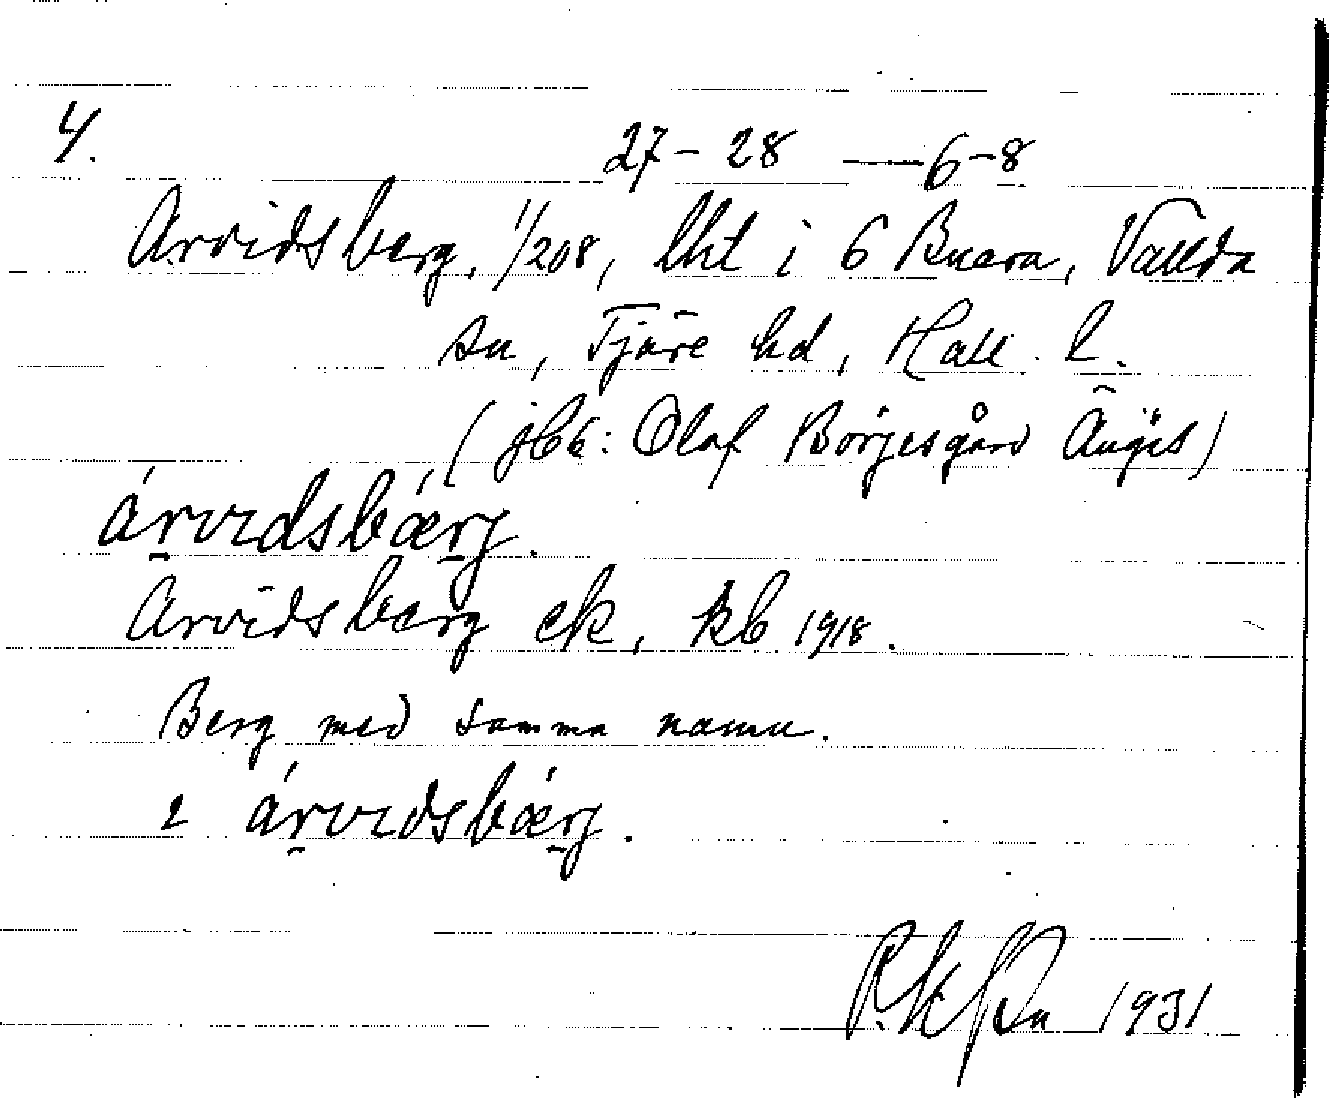 4.
27-28 — 6-8
Arvidsberg, 1/208, lht i 6 Buera, Vallda
sn, Fjäre hd, Hall. l.
(jbk: Olaf Börjesgård Äng)
árvιdsbǽrj.
Arvidsberg ek, kb 1918.
Berg med samma namn.
árvιdsbǽrj.
1931